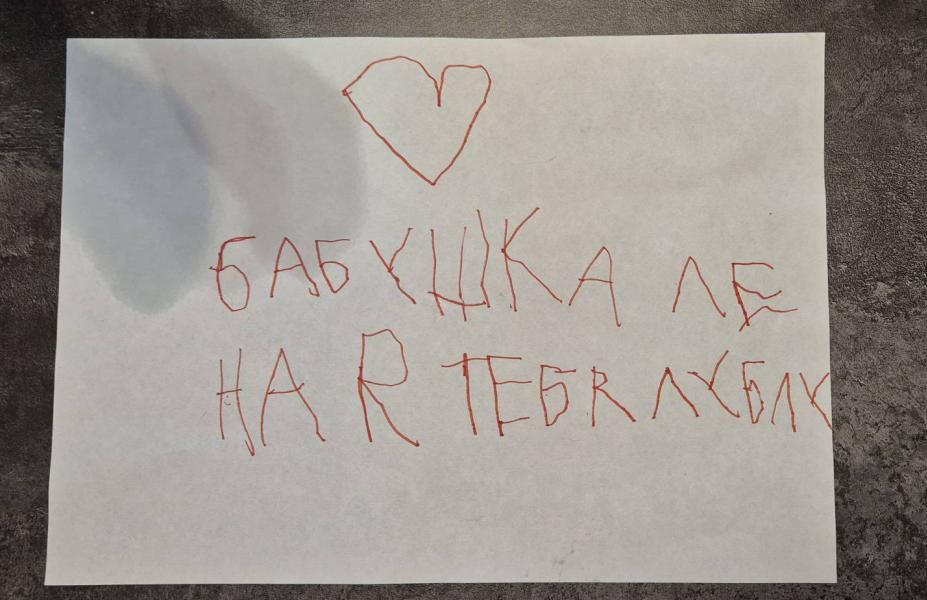 БАБУШКА ЛЕ
НА R ТЕБR ЛУБЛУ